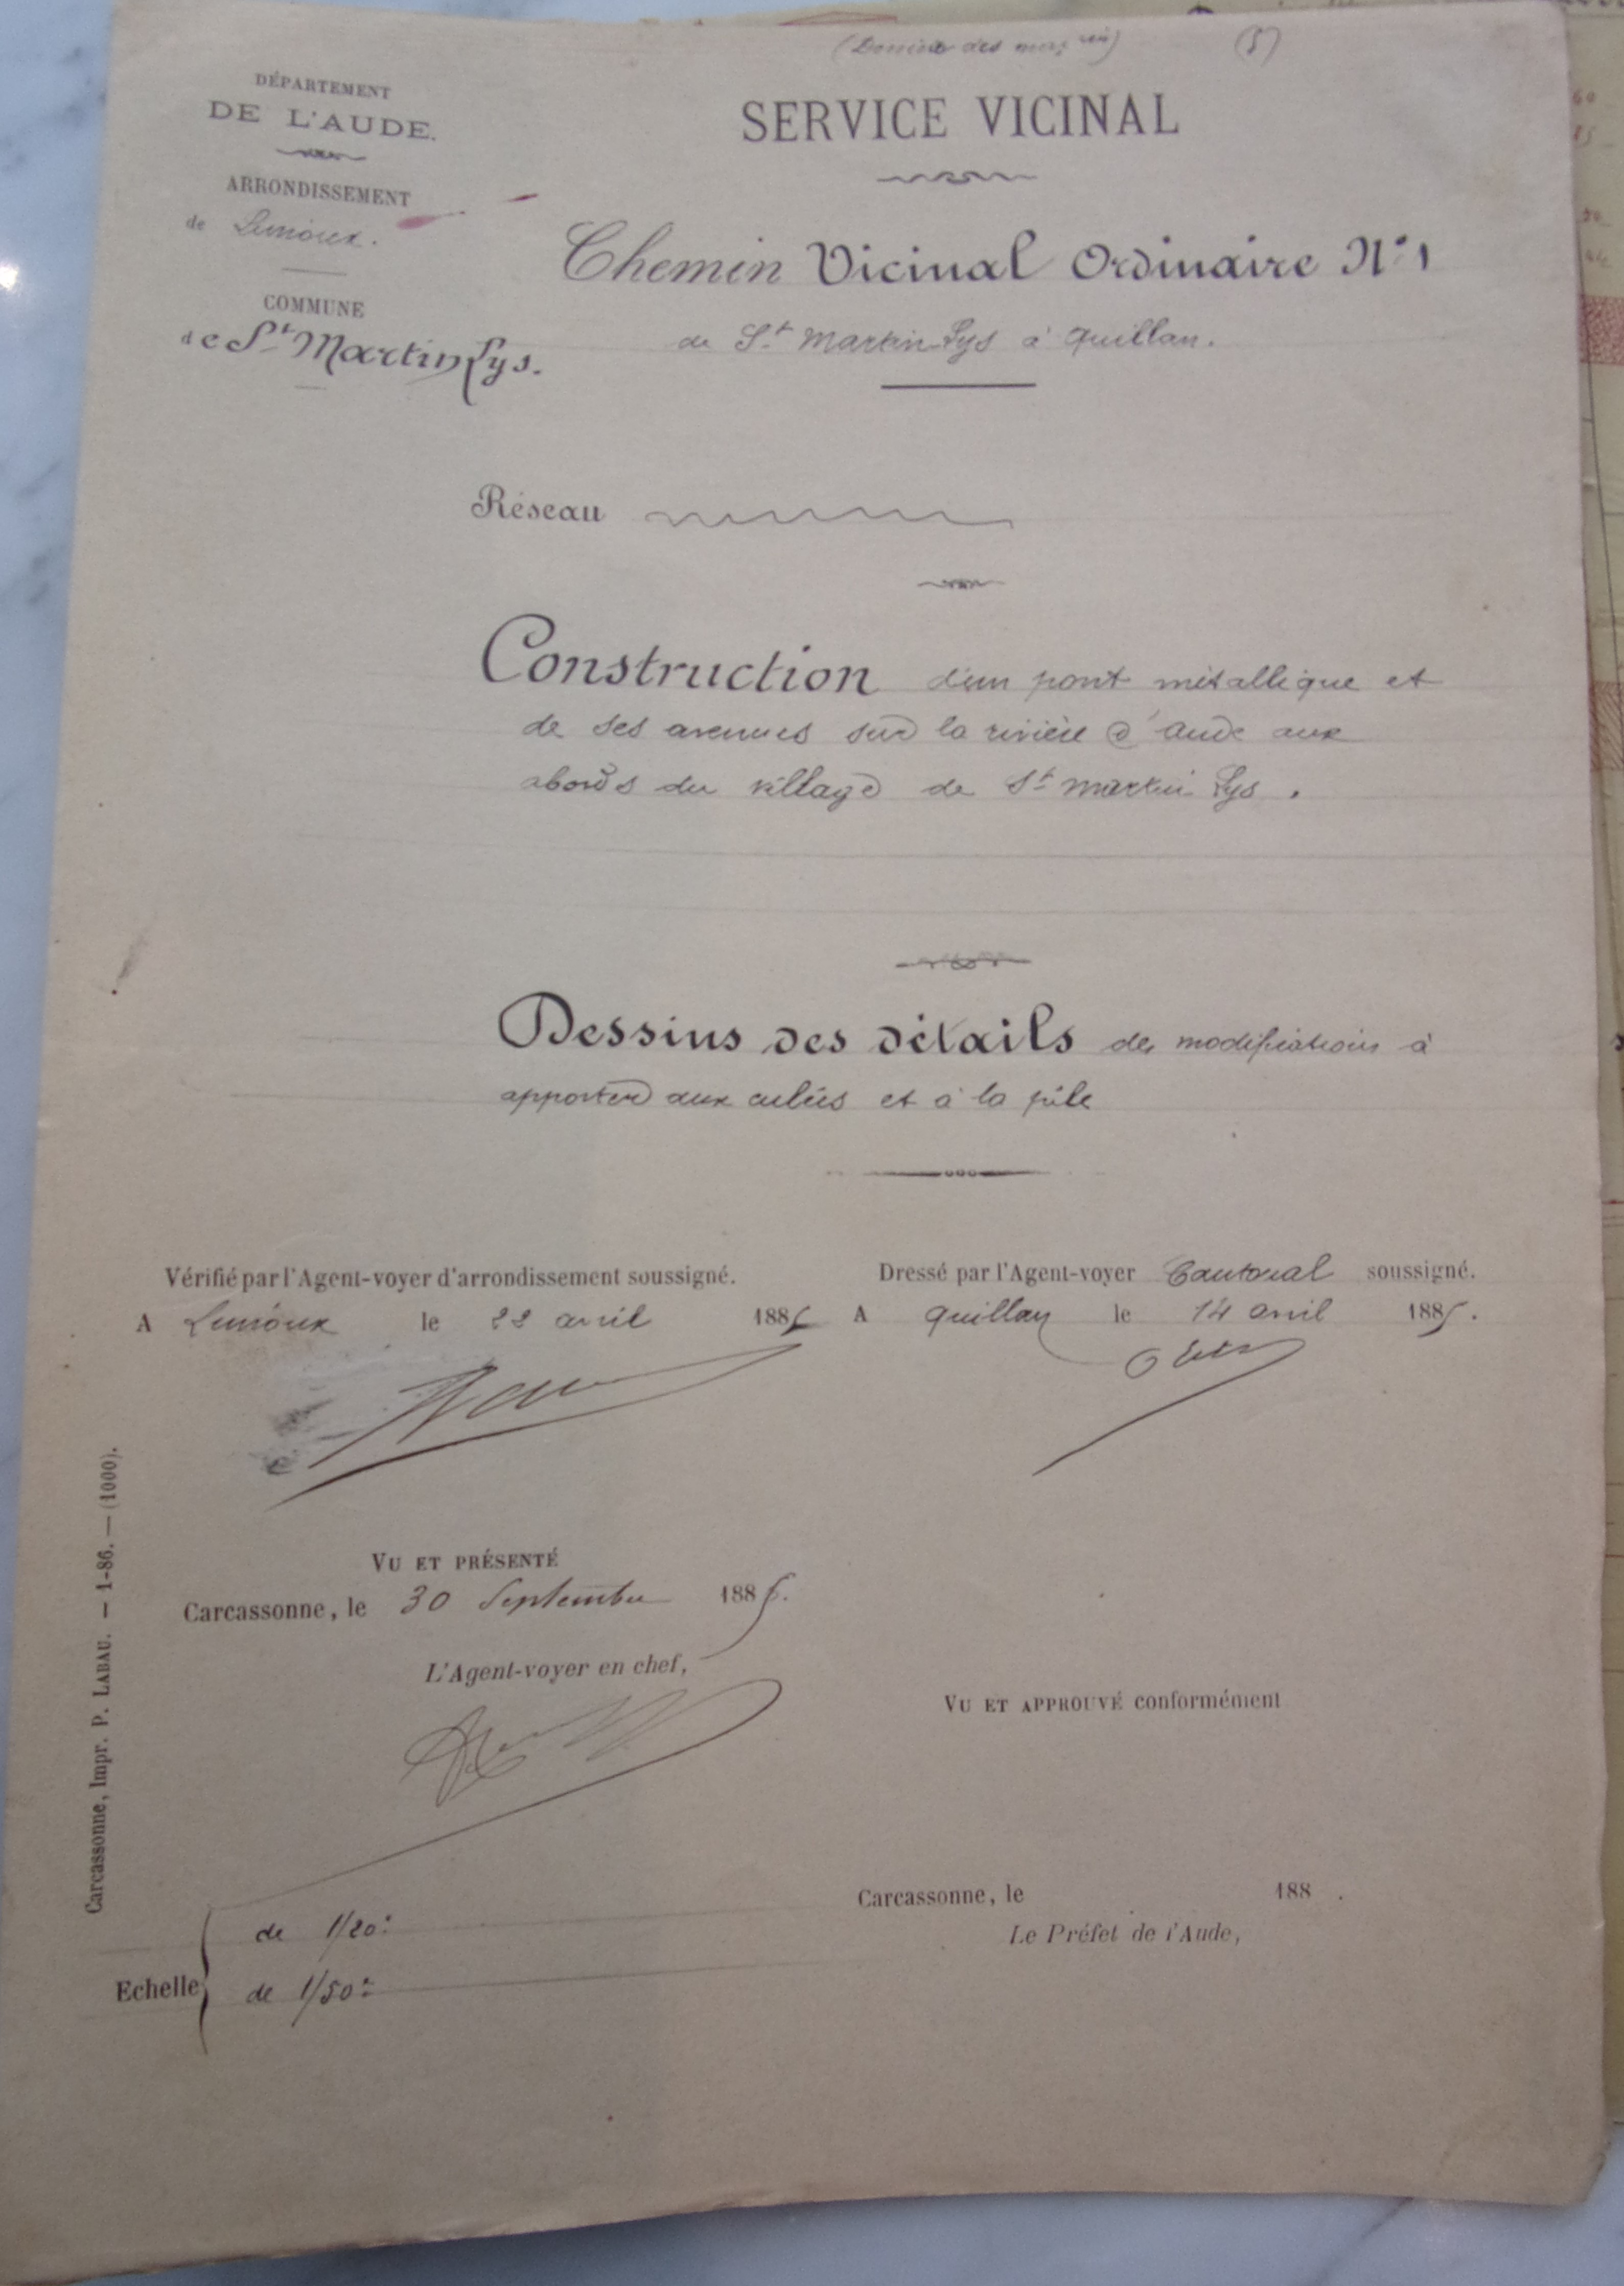 (5)
DÉPARTEMENT
DE L'AUDE.
SERVICE VICINAL
ARRONDISSEMENT
de Limoux.
Chemin Vicinal Ordinaire N° 1
COMMUNE
de St Martin Lys.
de St Martin Lys à Quillan.
Réseau
Construction d'un pont métallique et
de ses avenues sur la rivière d'Aude aux
abords du village de St Martin Lys.
Dessins des détails des modifications à
apporter aux culées et à la pile
Vérifié par l'Agent-voyer d'arrondissement soussigné.
A Limoux le 22 avril 188
Dressé par l'Agent-voyer Cantonal soussigné.
A Quillan le 14 avril 188
VU ET PRÉSENTÉ
Carcassonne, le 30 Septembre 188
L'Agent-voyer en chef,
VU ET APPROUVÉ conformément
Carcassonne, le 188 .
Le Préfet de l'Aude,
Echelle
de 1/20e
de 1/50e
Carcassonne, Impr. P. LABAU. — 1-86. — (1000).